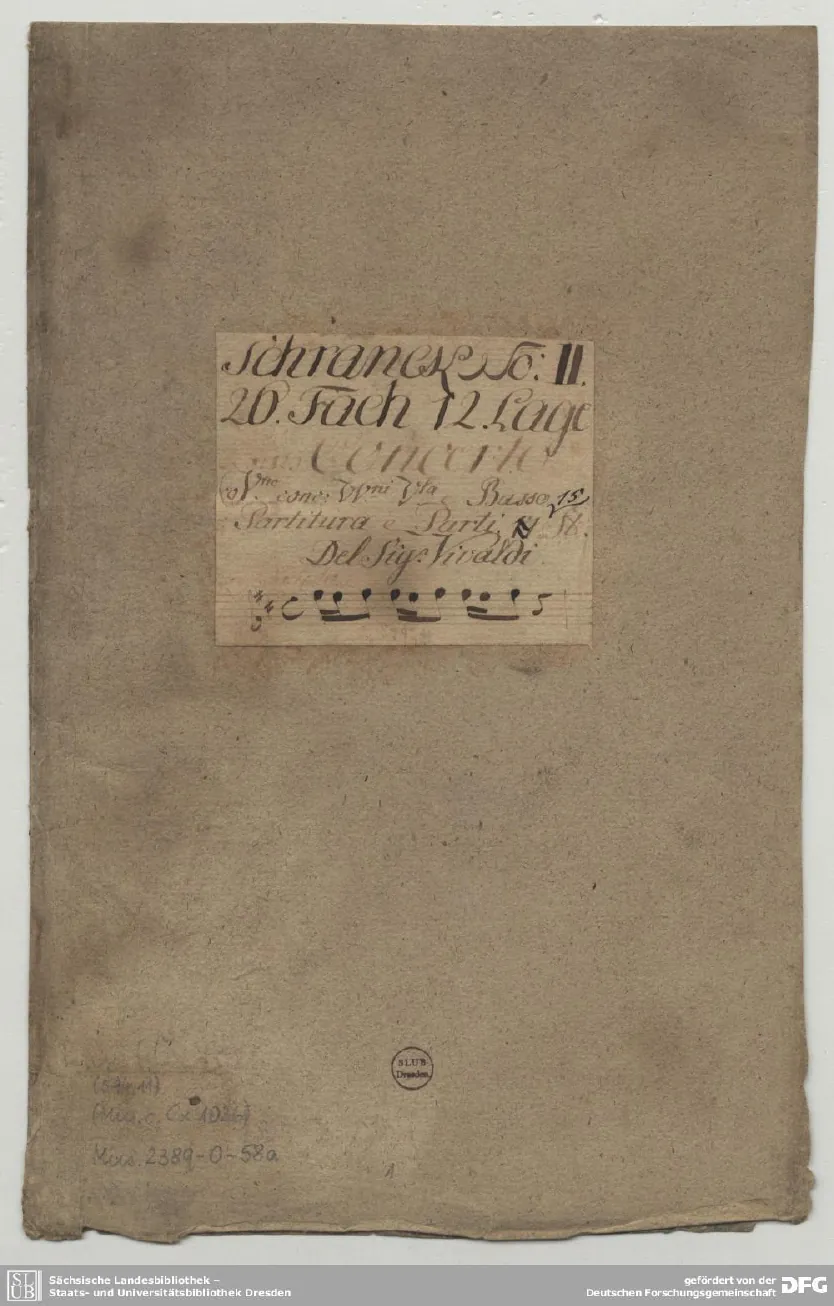 Schranck No: II.
20. Fach 12. Lage
Concerto
Co Vno conc: VVni Vla e Basso 15
Partitura e Parti St.
Del Sigr. Vivaldi
SLUB
Dresden
Mus. 2389-O-58a
1
SLUB
Sächsische Landesbibliothek –
Staats- und Universitätsbibliothek Dresden
gefördert von der
Deutschen Forschungsgemeinschaft
DFG